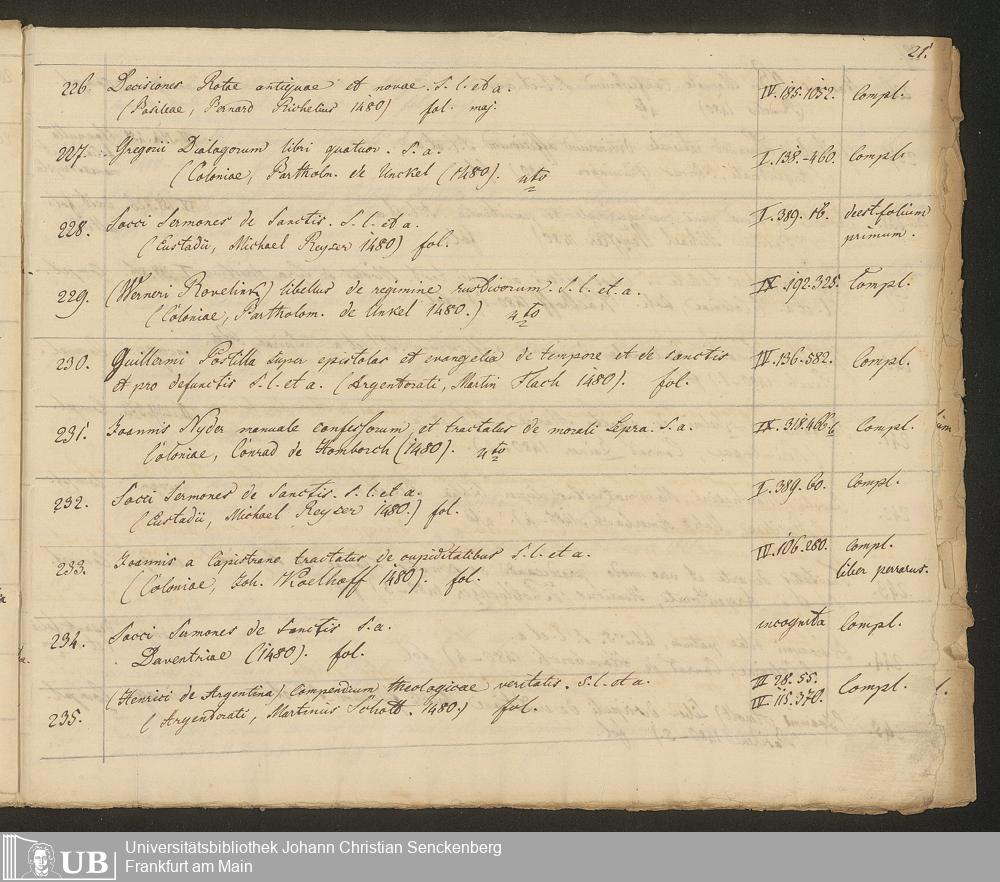 21.
226. Decisiones Rotae antiquae et novae. S. l. et a. IV. 185. 1052. Compl.
(Basileae, Bernard Richelius 1480) fol. maj.
227. Gregorii Dialogorum libri quatuor. S. a. I. 138. 460. Compl.
(Coloniae, Bartholm. de Unckel (1480). 4to
228. Socci Sermones de Sanctis. S. l. et a. I. 389. deest folium
(Eustadii, Michael Reyser 1480) fol. primum.
229. (Werneri Rovelink) libellus de regimine rusticorum. S. l. et. a. IX. 192. 325. Compl.
(Coloniae, Bartholom. de Unkel 1480.) 4to
230. Guillermi Postilla super epistolas et evangelia de tempore et de sanctis IV. 136. 582. Compl.
et pro defunctis S. l. et a. (Argentorati, Martin Flach 1480). fol.
231. Joannis Nyder manuale confessorum, et tractatus de morali Lepra. S. a. IX. 318. 466. Compl.
Coloniae, Conrad de Homborch (1480). 4to
232. Socci Sermones de Sanctis. S. l. et a. I. 389. 60. Compl.
(Eustadii, Michael Reyser 1480.) fol.
233. Joannis a Capistrano tractatus de cupiditatibus S. l. et a. IV. 106. 280. Compl.
(Coloniae, Joh. Koelhoff 1480). fol. liber perrarus.
234. Socci Sermones de Sanctis S. a. incognita Compl.
Daventriae (1480). fol.
(Henrici de Argentina) Compendium theologicae veritatis. S. l. et a. II 28. 55.
235. (Argentorati, Martinus Schott. 1480.) fol. IV. 115. 370. Compl.
UB Universitätsbibliothek Johann Christian Senckenberg
Frankfurt am Main